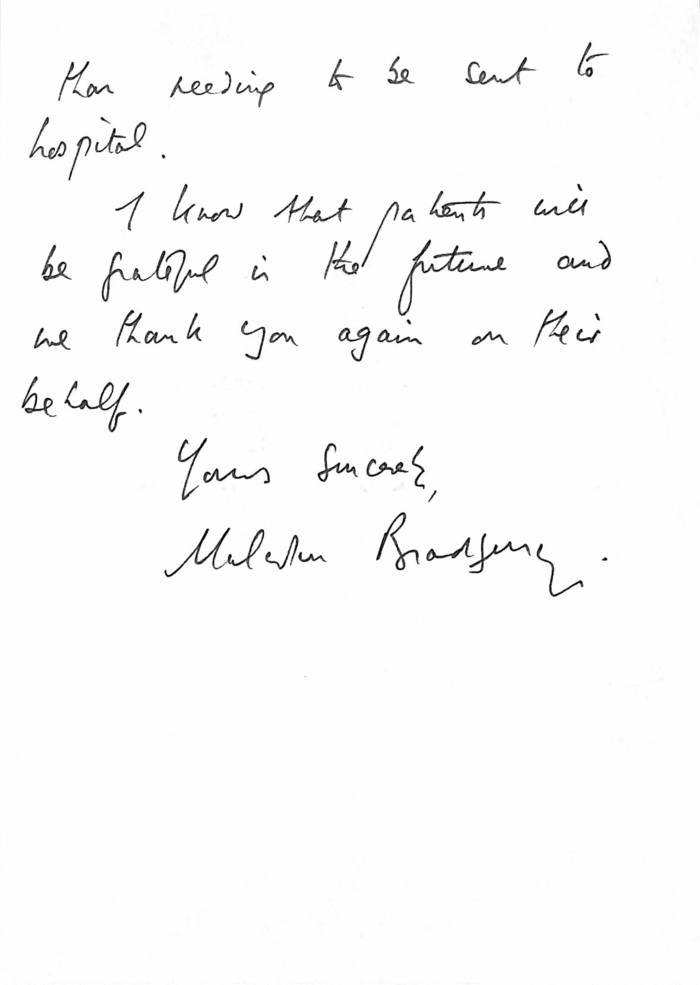 than needing to be sent to
hospital.
I know that patients will
be grateful in the future and
we thank you again on their
behalf.
Yours Sincerely,
Malcolm